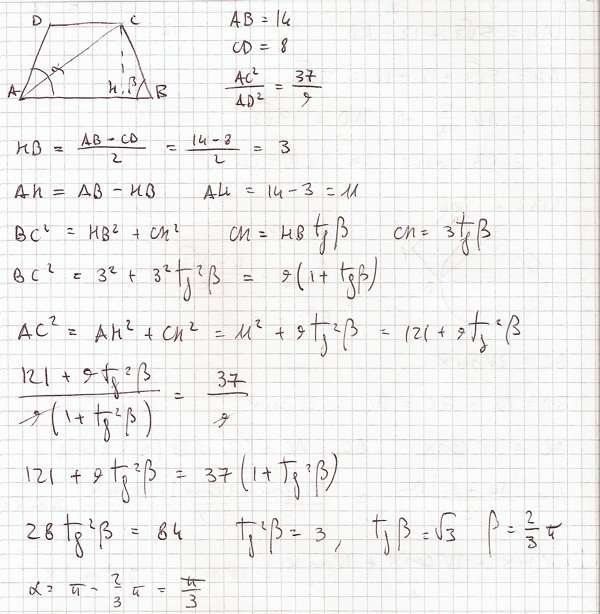 D C
α
A H β B
AB = 14
CD = 8
AC² / AD² = 37 / 9
HB = (AB - CD) / 2 = (14 - 8) / 2 = 3
AH = AB - HB AH = 14 - 3 = 11
BC² = HB² + CH² CH = HB tg β CH = 3 tg β
BC² = 3² + 3² tg²β = 9(1 + tgβ)
AC² = AH² + CH² = 11² + 9 tg²β = 121 + 9 tg²β
(121 + 9 tg²β) / (9(1 + tg²β)) = 37 / 9
121 + 9 tg²β = 37(1 + tg²β)
28 tg²β = 84 tg²β = 3, tg β = √3 β = 2/3 π
α = π - 2/3 π = π/3